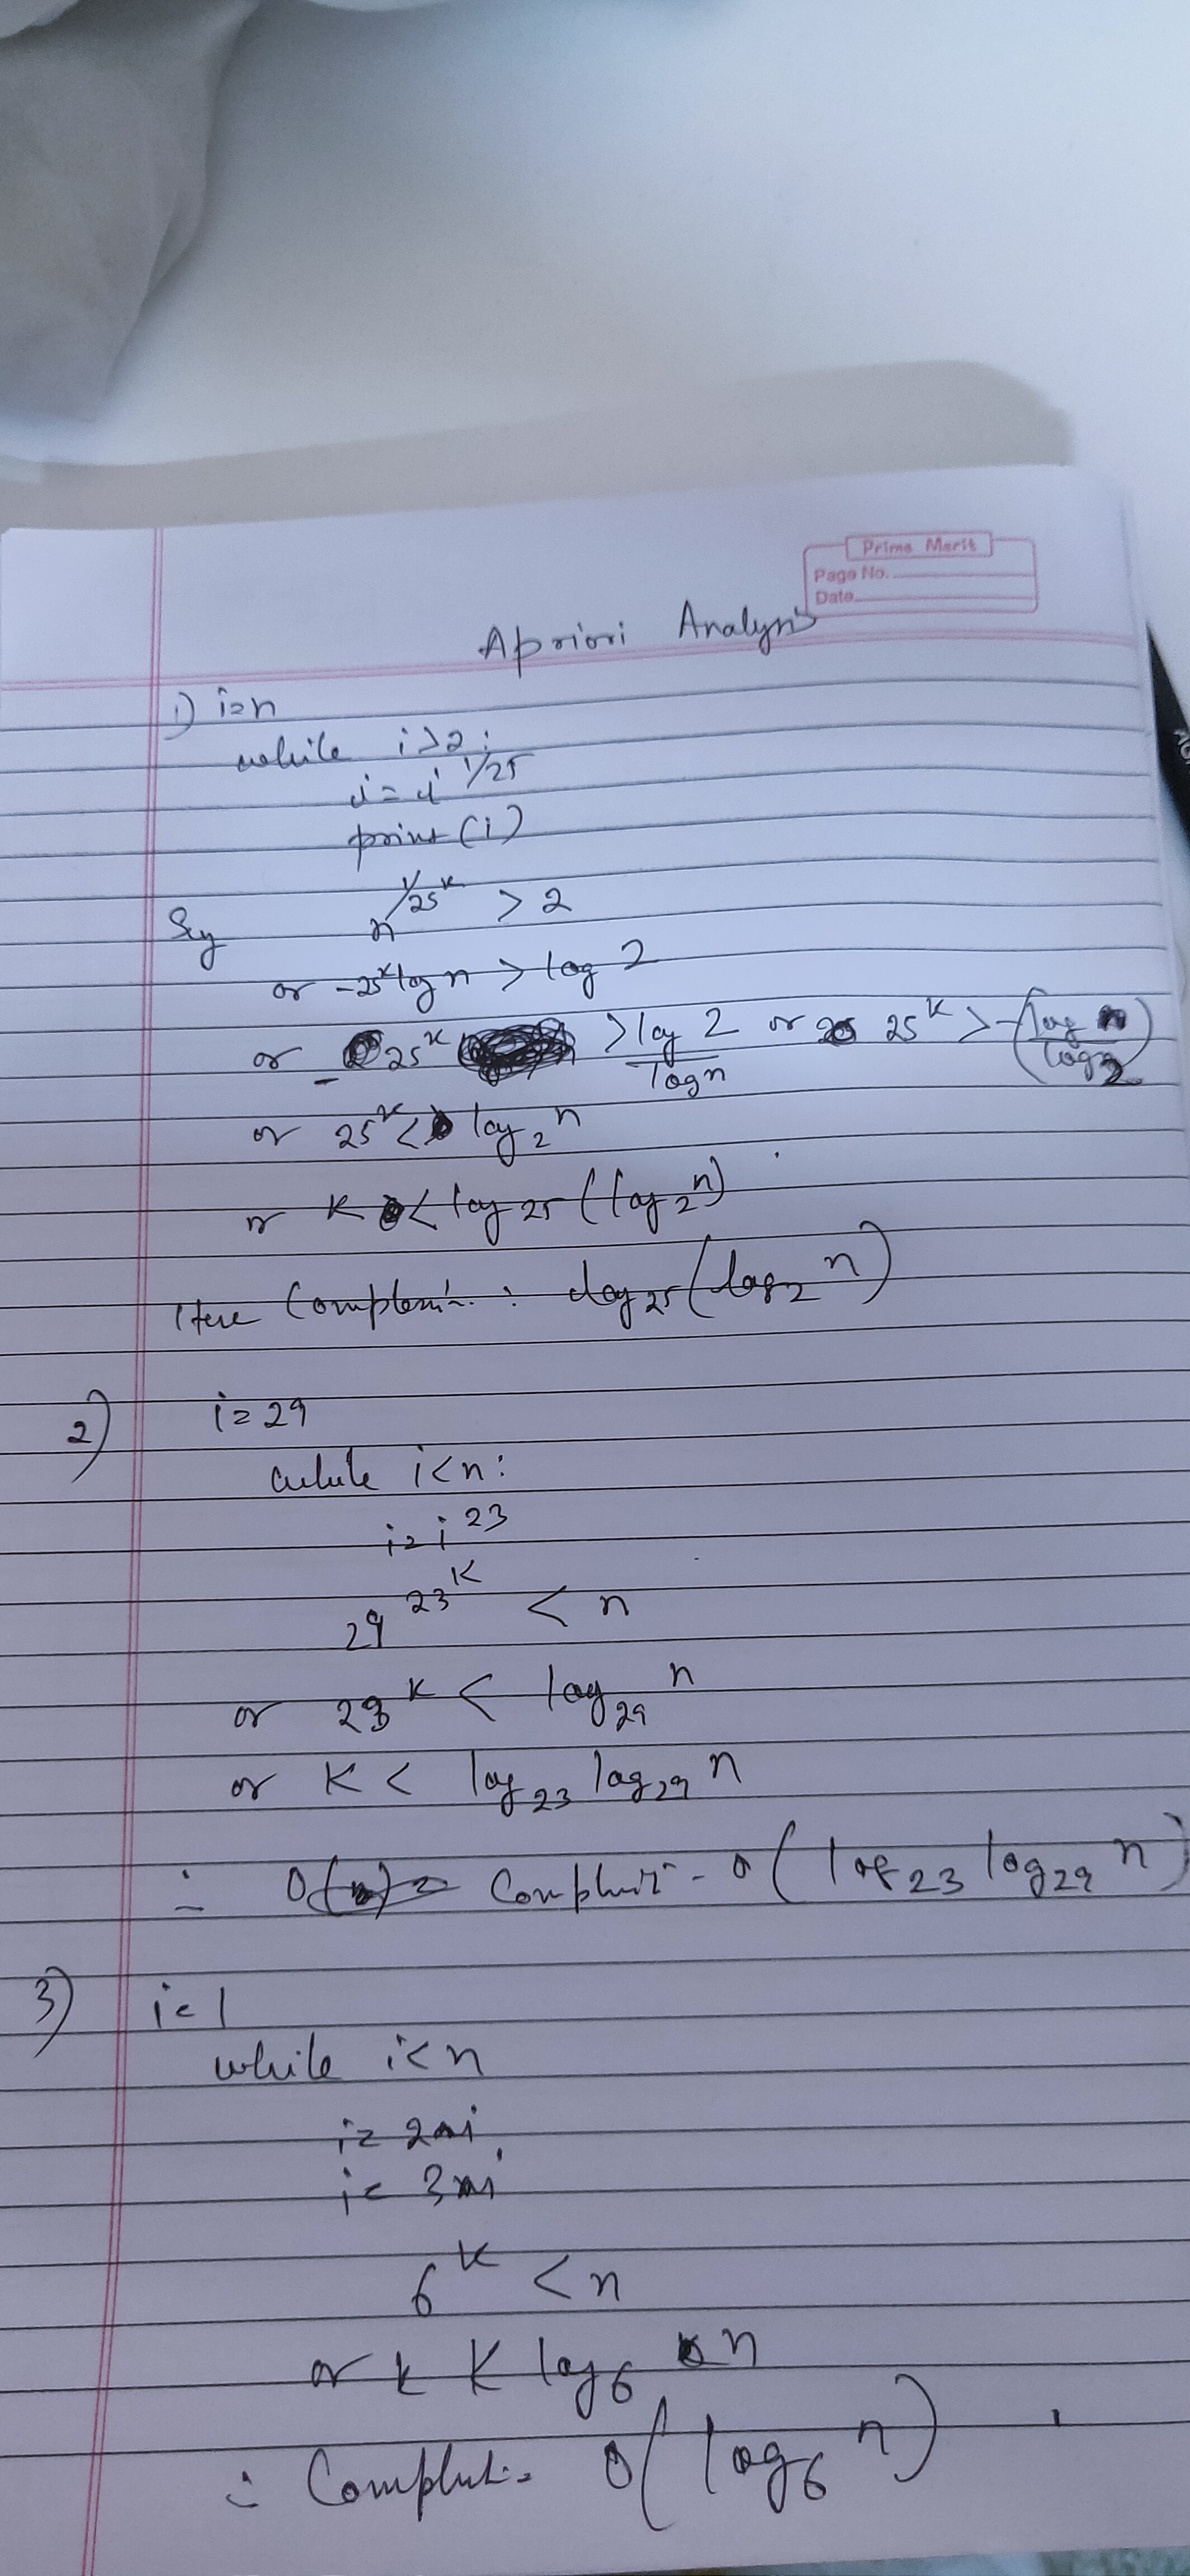 Prime Marit
Page No.
Date
Apriori Analysis
1) i=n
while i>2:
i = i^1/25
print(i)
n^1/25^k > 2
or -25^k log n > log 2
or - 25^k > log 2 / log n or 25^k > -(log n / log 2)
or 25^k < log₂ n
or k < log₂₅ (log₂ n)
Here Complexity: log₂₅ (log₂ n)
2) i=29
while i<n:
i=i^23
29^23^k < n
or 23^k < log₂₉ n
or k < log₂₃ log₂₉ n
∴ Complexity - O(log₂₃ log₂₉ n)
3) i=1
while i<n
i= 2*i
i= 3*i
6^k < n
or k < log₆ n
∴ Complexity = O(log₆ n)